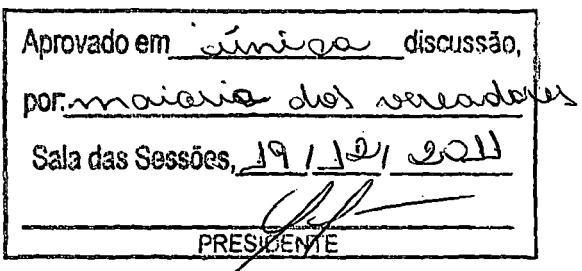 Aprovado em única discussão,
por: maioria dos vereadores
Sala das Sessões, 19 / 12 / 2011
PRESIDENTE